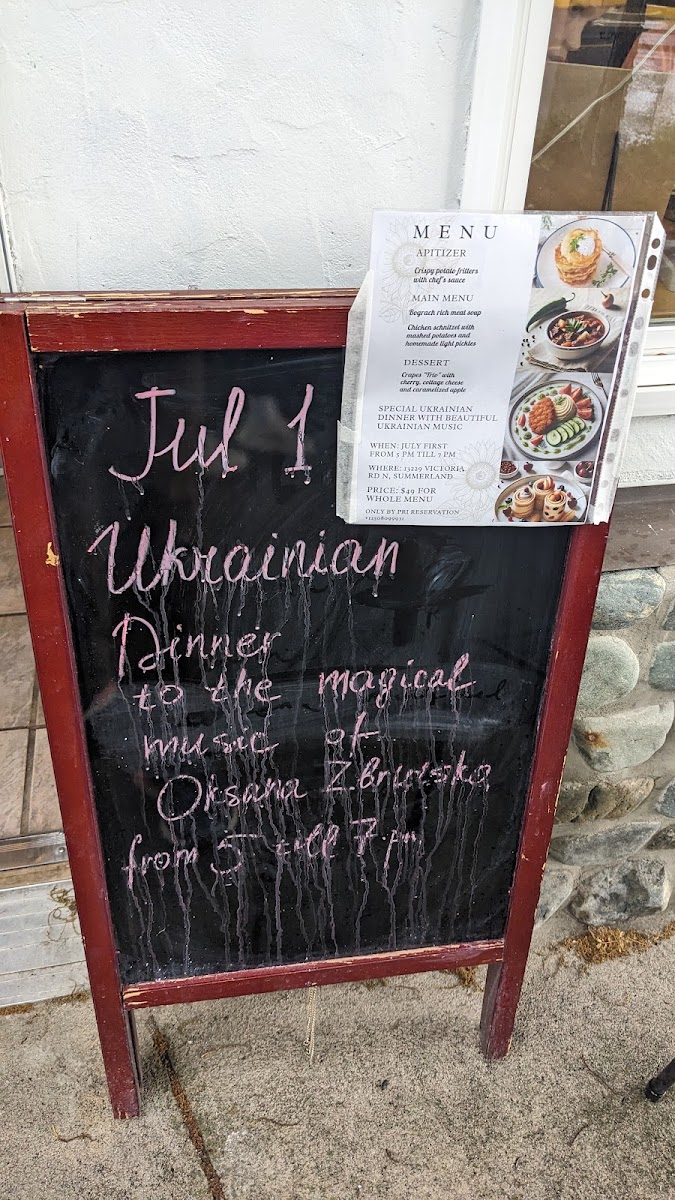 MENU
APITIZER
Crispy potato fritters
with chef's sauce
MAIN MENU
Bograch rich meal soup
Chicken schnitzel with
mashed potatoes and
homemade light pickles
DESSERT
Crapes "Trio" with
cherry, cottage cheese
and caramelized apple
SPECIAL UKRAINIAN
DINNER WITH BEAUTIFUL
UKRAINIAN MUSIC
WHEN: JULY FIRST
FROM 5 PM TILL 7 PM
WHERE: 13229 VICTORIA
RD N, SUMMERLAND
PRICE: $49 FOR
WHOLE MENU
ONLY BY PRI RESERVATION
+12508099931
Jul 1
Ukrainian
Dinner
to the magical
music of
Oksana
from 5 till 7 pm